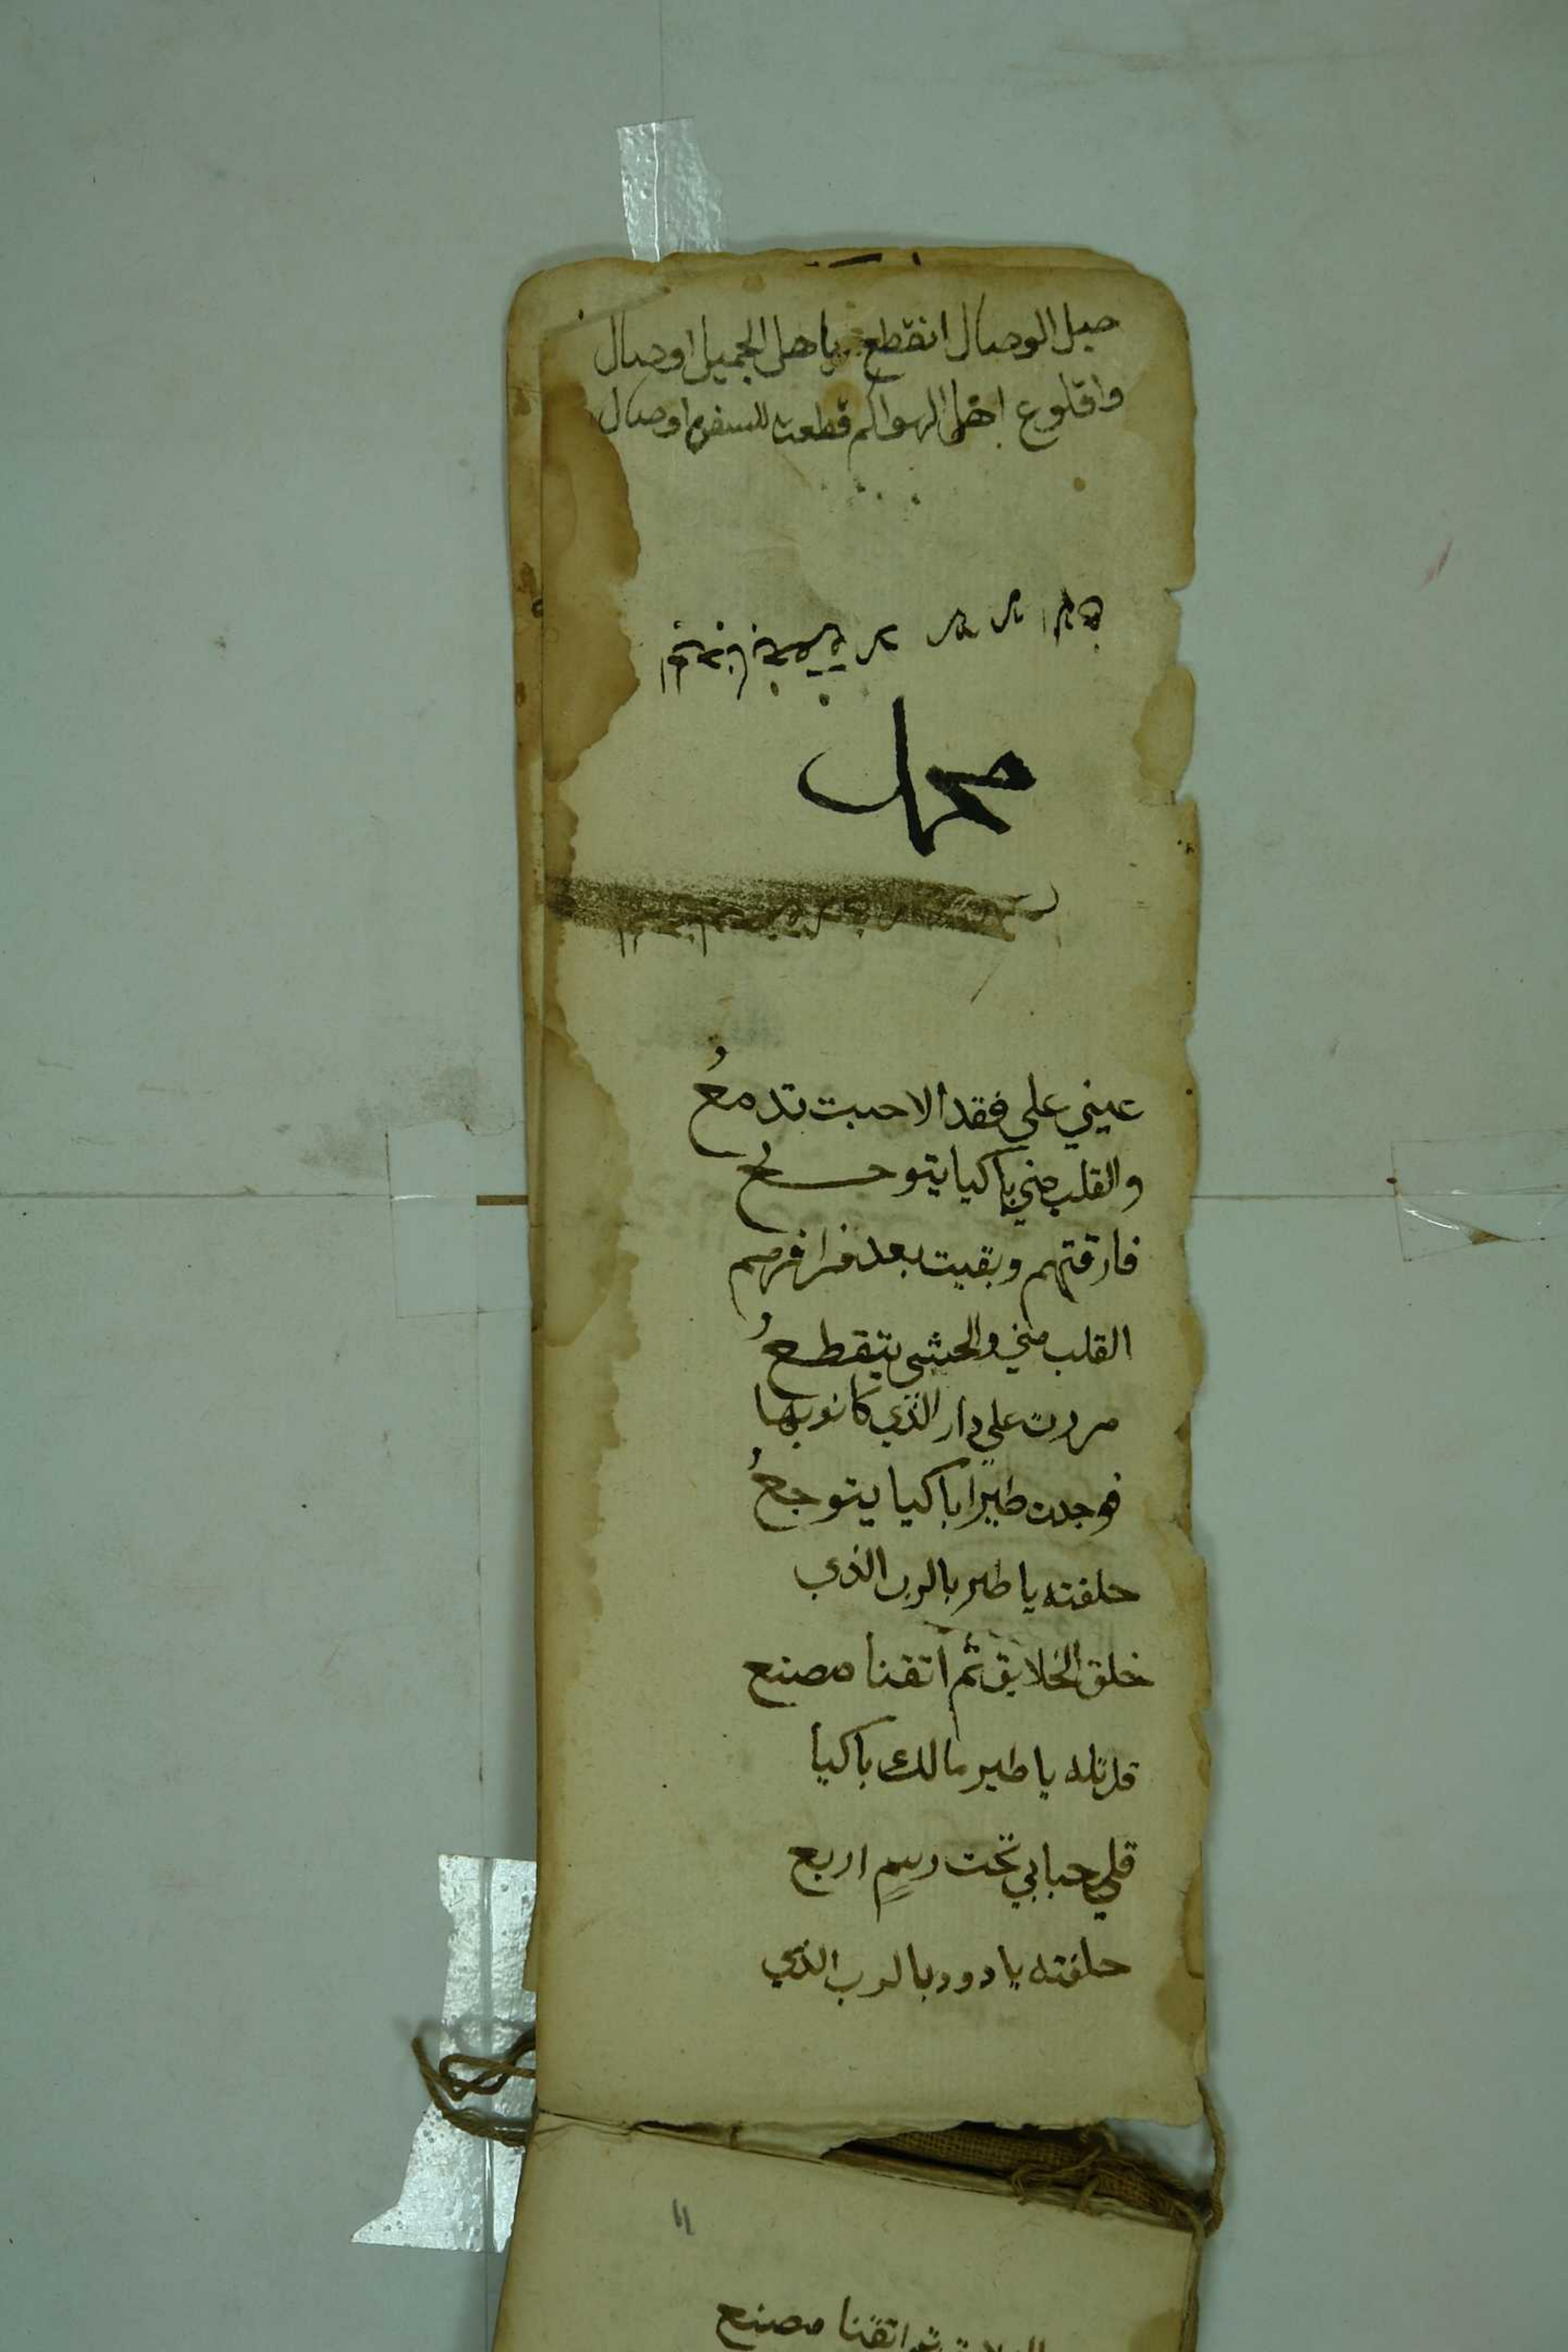 حبل الوصال انقطع ياهل الجميل اوصال
واقلوع اهل الهوا كم قطعت للسفر اوصال
محمد
عيني علي فقد الاحبت تدمعُ
والقلب مني باكيا يتوجعُ
فارقتهم وبقيت بعد فراقهم
القلب مني والحشى يتقطعُ
مررت علي دار الذي كانو بها
فوجدت طيرًا باكيا يتوجعُ
حلفته يا طير بالرب الذي
خلق الخلايق ثم اتقنا مصنع
قلتله يا طير مالك باكيا
قلي حبابي تحت رسمٍ اربع
حلفته يا دود بالرب الذي
١١
اتقنا مصنع